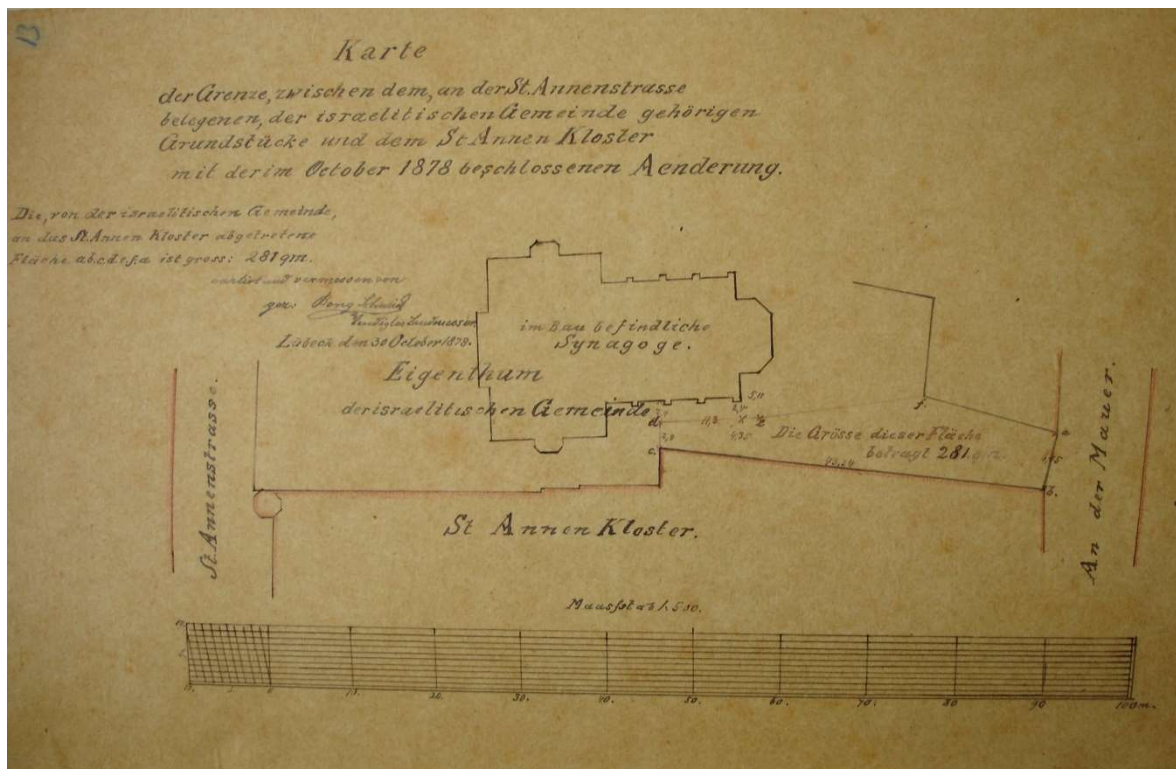 13
Karte
der Grenze, zwischen dem, an der St. Annenstrasse
belegenen, der israelitischen Gemeinde gehörigen
Grundstücke und dem St Annen Kloster
mit der im October 1878 beschlossenen Aenderung.
Die, von der israelitischen Gemeinde,
an das St. Annen Kloster abgetretene
Fläche a.b.c.d.e.f.a ist gross: 281 qm.
cartirt und vermessen von
gez.
Lübeck den 30 October 1878.
im Bau befindliche
Synagoge.
Eigenthum
der israelitischen Gemeinde
St. Annenstrasse.
An der Mauer.
5,11
d.
11,3
x
4,35
c.
f.
a
b.
Die Grösse dieser Fläche
beträgt 281. qm.
St Annen Kloster.
Maassstab 1:500.
10.
0
10.
20.
30.
40.
50.
60.
70.
80
90
100 m.